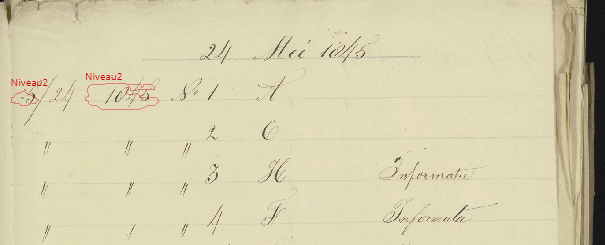 24 Mei 1845
Niveau2 Niveau2
5/24 1845 No 1 A
" " " 2 C
" " " 3 H Informatie
" " " 4 F Informatie